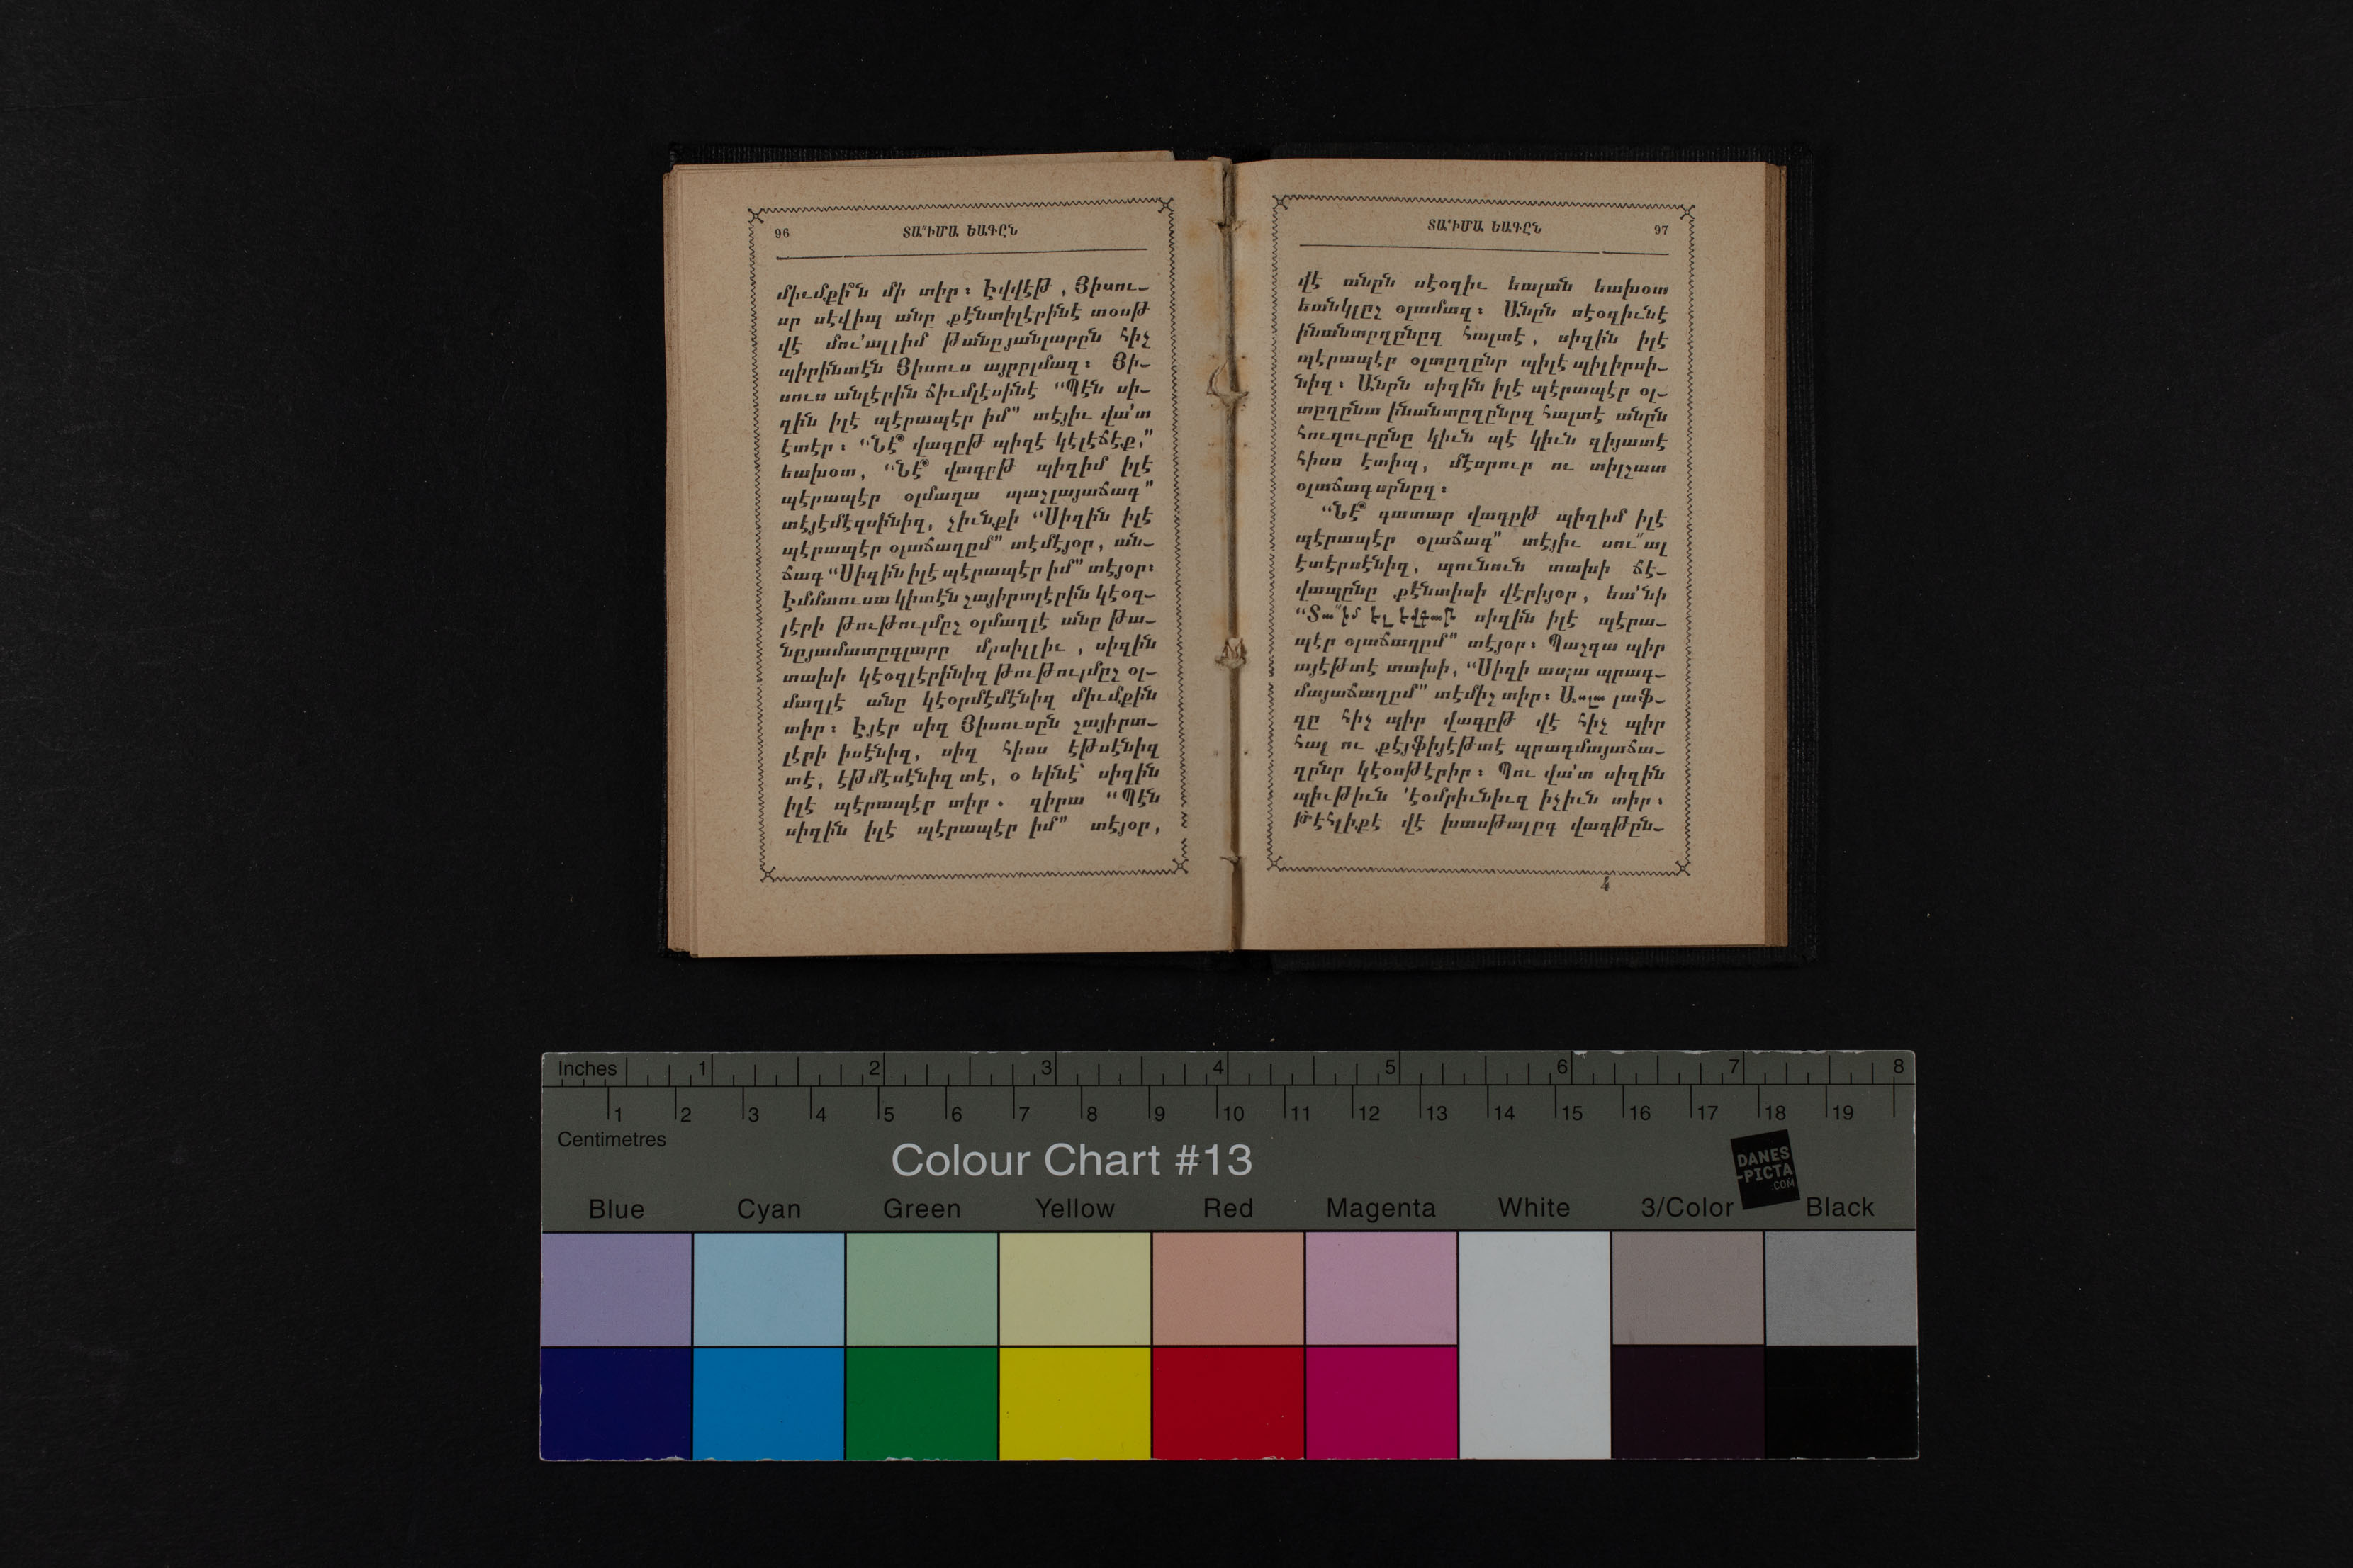 96
ՏԱ՟ԻՄԱ ԵԱԳԸՆ
միւմքի՞ն մի տիր։ Էվվէթ, Յիսու-
սը սէվիպ անը քէնտիլէրինէ տօսթ
վէ մու՛ալլիմ թանըյանլարըն հիչ
պիրինտէն Յիսուս այրըլմազ։ Յի-
սուս անլէրին ճիւմլէսինէ “Պէն սի-
զին իլէ պէրապէր իմ” տէյիւ վա՛տ
էտէր։ “Նէ՞ վագըթ պիզէ կէլէճէք,”
եախօտ, “Նէ՞ վագըթ պիզիմ իլէ
պէրապէր օլմաղա պաշլայաճագ”
տէյէմէզսինիզ, չիւնքի “Սիզին իլէ
պէրապէր օլաճաղըմ” տէմէյօր, ան-
ճագ “Սիզին իլէ պէրապէր իմ” տէյօր։
Էմմաուսա կիտէն շայիրտլէրին կէօզ-
լէրի թութուլմըշ օլմաղլէ անը թա-
նըյամատըգլարը միսիլլիւ, սիզին
տախի կէօզլէրինիզ թութուլմըշ օլ-
մաղլէ անը կէօրմէմէնիզ միւմքին
տիր։ Էյէր սիզ Յիսուսըն շայիրտ-
լէրի իսէնիզ, սիզ հիսս էթսէնիզ
տէ, էթմէսէնիզ տէ, օ եինէ՝ սիզին
իլէ պէրապէր տիր. զիրա “Պէն
սիզին իլէ պէրապէր իմ” տէյօր,
ՏԱ՟ԻՄԱ ԵԱԳԸՆ
97
վէ անըն սէօզիւ եալան եախօտ
եանկլըշ օլամազ։ Անըն սէօզիւնէ
ինանտըղընըզ հալտէ, սիզին իլէ
պէրապէր օլտըղընը պիլէ պիլիրսի-
նիզ։ Անըն սիզին իլէ պէրապէր օլ-
տըղընա ինանտըղընըզ հալտէ անըն
հուզուրընը կիւն պէ կիւն զիյատէ
հիսս էտիպ, մէսրուր ու տիլշատ
օլաճագսընըզ։
“Նէ՞ գատար վագըթ պիզիմ իլէ
պէրապէր օլաճագ” տէյիւ սու՟ալ
էտէրսէնիզ, պունուն տախի ճէ-
վապընը քէնտիսի վէրիյօր, եա՛նի
“Տա՟իմ էլ էվգաթ սիզին իլէ պէրա-
պէր օլաճաղըմ” տէյօր։ Պաշգա պիր
այէթտէ տախի, “Սիզի ասլա պրագ-
մայաճաղըմ” տէմիշ տիր։ Ասլա լաֆ-
զը հիչ պիր վագըթ վէ հիչ պիր
հալ ու քէյֆիյէթտէ պրագմայաճա-
ղընը կէօսթէրիր։ Պու վա՛տ սիզին
պիւթիւն ՛էօմրիւնիւզ իչիւն տիր։
Թէհլիքէ վէ խասթալըգ վագթըն-
4
Inches 1 2 3 4 5 6 7 8
1 2 3 4 5 6 7 8 9 10 11 12 13 14 15 16 17 18 19
Centimetres
Colour Chart #13
DANES
-PICTA
.COM
Blue Cyan Green Yellow Red Magenta White 3/Color Black